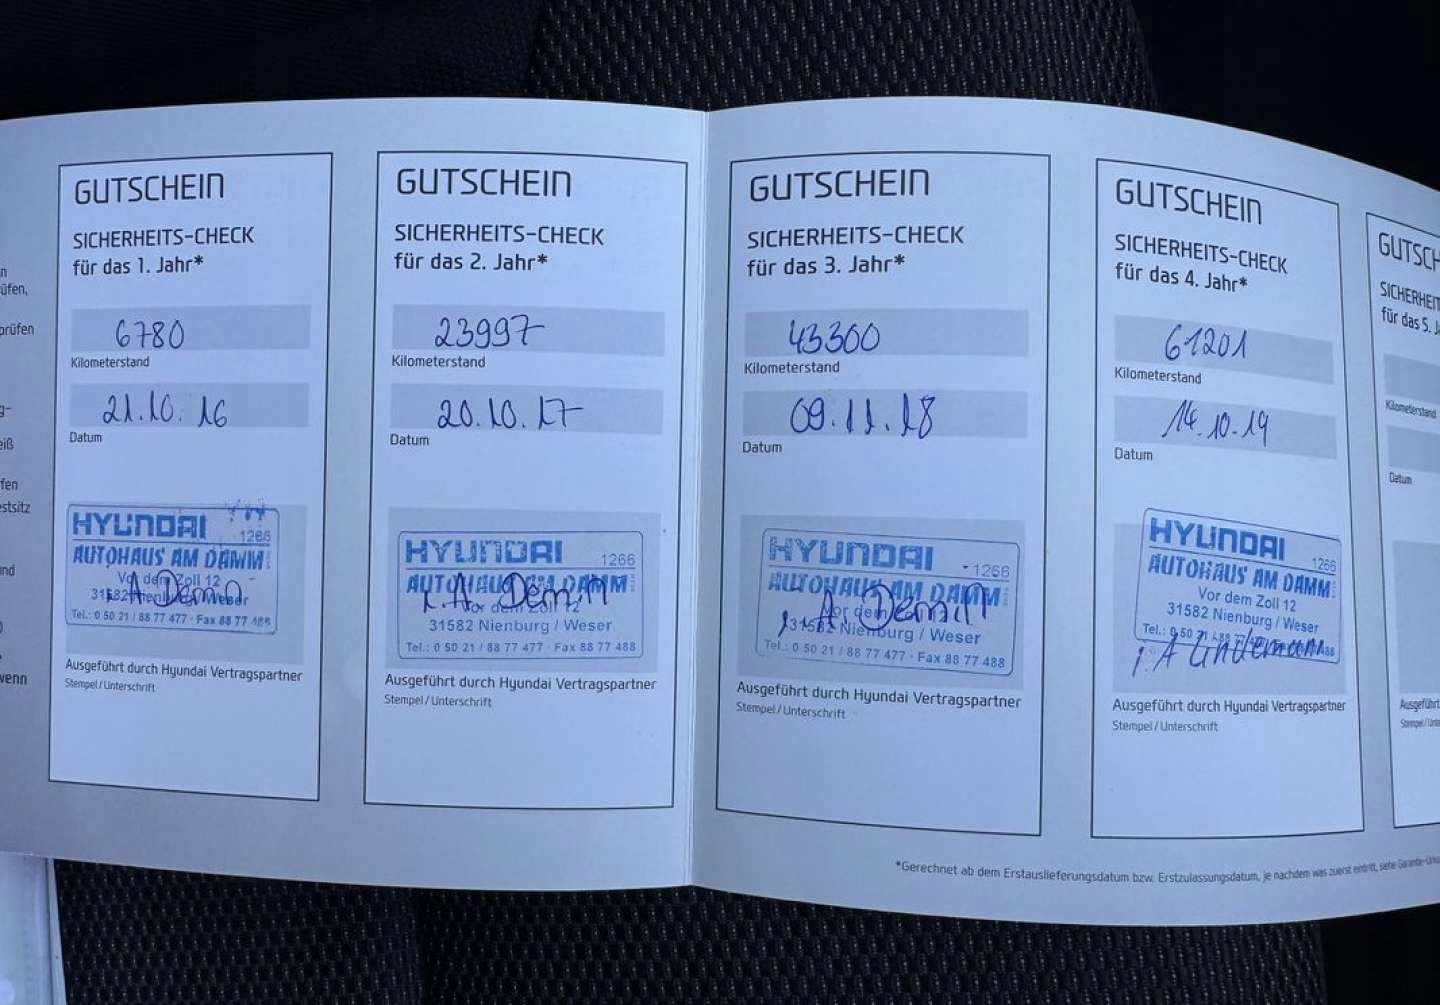 n
üfen,
prüfen
g-
eiß
fen
estsitz
nd
wenn
GUTSCHEIN
SICHERHEITS-CHECK
für das 1. Jahr*
6780
Kilometerstand
21.10.16
Datum
HYUNDAI
1266
AUTOHAUS AM DAMM
Vor dem Zoll 12
31582 Nienburg/Weser
Tel.: 0 50 21 / 88 77 477 · Fax 88 77 488
Ausgeführt durch Hyundai Vertragspartner
Stempel/Unterschrift
GUTSCHEIN
SICHERHEITS-CHECK
für das 2. Jahr*
23997
Kilometerstand
20.10.17
Datum
HYUNDAI
1266
AUTOHAUS AM DAMM
Vor dem Zoll 12
31582 Nienburg / Weser
Tel.: 0 50 21 / 88 77 477 · Fax 88 77 488
Ausgeführt durch Hyundai Vertragspartner
Stempel/Unterschrift
GUTSCHEIN
SICHERHEITS-CHECK
für das 3. Jahr*
43300
Kilometerstand
09.11.18
Datum
HYUNDAI
1266
AUTOHAUS AM DAMM
Vor dem
31582 Nienburg / Weser
Tel.: 0 50 21 / 88 77 477 · Fax 88 77 488
Ausgeführt durch Hyundai Vertragspartner
Stempel/Unterschrift
GUTSCHEIN
SICHERHEITS-CHECK
für das 4. Jahr*
61201
Kilometerstand
14.10.19
Datum
HYUNDAI
1266
AUTOHAUS AM DAMM
Vor dem Zoll 12
31582 Nienburg / Weser
Tel.: 0 50 21 / 88 7
i. A
Ausgeführt durch Hyundai Vertragspartner
Stempel/Unterschrift
GUTSCH
SICHERHEIT
für das 5. J
Kilometerstand
Datum
Ausgeführt
*Gerechnet ab dem Erstauslieferungsdatum bzw. Erstzulassungsdatum, je nachdem was zuerst eintritt, siehe Garantie-Urku